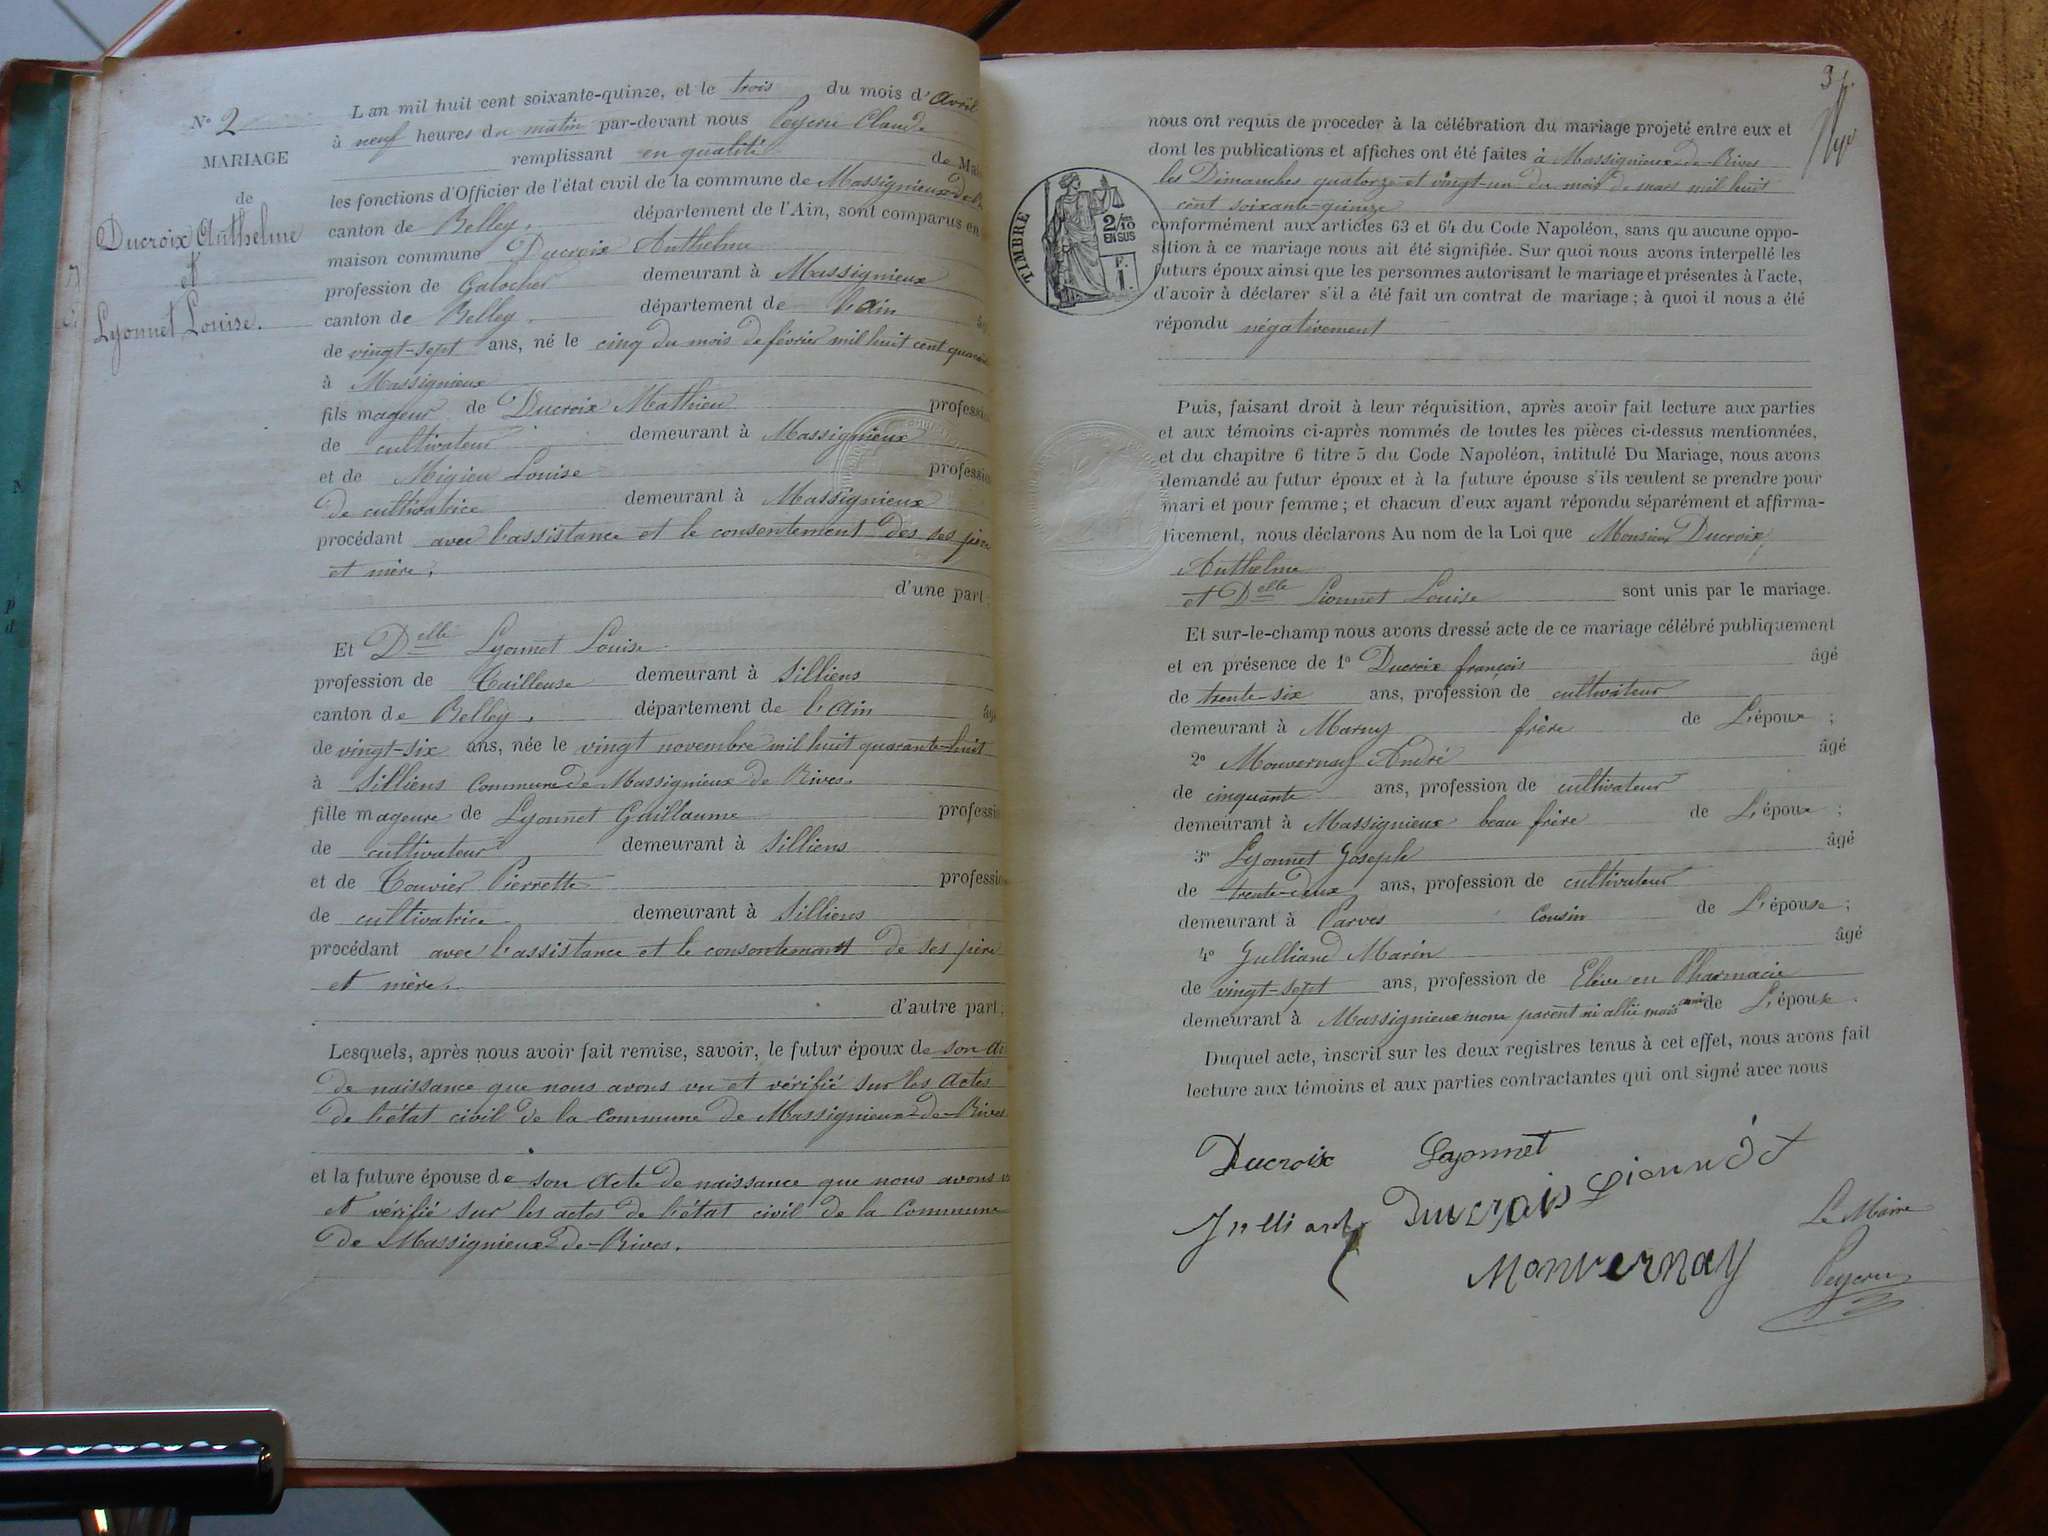 N° 2
MARIAGE
de
Ducroix Anthelme
et
Lyonnet Louise.
L an mil huit cent soixante-quinze, et le trois du mois d' avril
à neuf heures du matin par-devant nous Peyern Claude
remplissant en qualité de Mai
les fonctions d'Officier de l'état civil de la commune de Massignieux-de-R
canton de Belley, département de l'Ain, sont comparus en
maison commune Ducroix Anthelme
profession de Galocher demeurant à Massignieux
canton de Belley département de L'ain
de vingt-sept ans, né le cinq du mois de février mil huit cent quaran
à Massignieux
fils mageur de Ducroix Mathieu professio
de cultivateur demeurant à Massignieux
et de Migieu Louise professio
de cultivatrice demeurant à Massignieux
procédant avec l'assistance et le consentement des ses père
et mère,
d'une part;
Et Delle Lyonnet Louise
profession de Tailleuse demeurant à Silliens
canton de Belley, département de l'Ain âg
de vingt-six ans, née le vingt novembre mil huit quarante-huit
à Silliens Commune de Massignieux de Rives.
fille mageure de Lyonnet Guillaume professi
de cultivateur demeurant à Silliens
et de Touvier Pierrette professio
de cultivatrice demeurant à Silliens
procédant avec l'assistance et le consentement de ses père
et mère.
d'autre part;
Lesquels, après nous avoir fait remise, savoir, le futur époux de son ac
de naissance que nous avons vu et vérifié sur les actes
de l'état civil de la Commune de Massignieux-de-Rives
et la future épouse de son acte de naissance que nous avons v
et vérifié sur les actes de l'état civil de la Commune
de Massignieux-de-Rives.
nous ont requis de proceder à la célébration du mariage projeté entre eux et
dont les publications et affiches ont été faites à Massignieux-de-Rives
les Dimanches quatorze et vingt-un du mois de mars mil huit
cent soixante-quinze
TIMBRE
2/10
EN SUS
F.
1.
conformément aux articles 63 et 64 du Code Napoléon, sans qu aucune oppo-
sition à ce mariage nous ait été signifiée. Sur quoi nous avons interpellé les
futurs époux ainsi que les personnes autorisant le mariage et présentes à l'acte,
d'avoir à déclarer s'il a été fait un contrat de mariage; à quoi il nous a été
répondu négativement
Puis, faisant droit à leur réquisition, après avoir fait lecture aux parties
et aux témoins ci-après nommés de toutes les pièces ci-dessus mentionnées,
et du chapitre 6 titre 5 du Code Napoléon, intitulé Du Mariage, nous avons
demandé au futur époux et à la future épouse s'ils veulent se prendre pour
mari et pour femme; et chacun d'eux ayant répondu séparément et affirma-
tivement, nous déclarons Au nom de la Loi que Monsieur Ducroix
Anthelme
et Delle Lionnet Louise sont unis par le mariage.
Et sur-le-champ nous avons dressé acte de ce mariage célébré publiquement
et en présence de 1° Ducroix françois âgé
de trente-six ans, profession de cultivateur
demeurant à Marny frère de L'époux;
2° Monvernay André âgé
de cinquante ans, profession de cultivateur
demeurant à Massignieux beau frère de L'époux;
3° Lyonnet Joseph âgé
de trente-deux ans, profession de cultivateur
demeurant à Parves Cousin de L'épouse;
4° Julliand Marin âgé
de vingt-sept ans, profession de Elève en Pharmacie
demeurant à Massignieux non parent ni allié mais ami de L'époux.
Duquel acte, inscrit sur les deux registres tenus à cet effet, nous avons fait
lecture aux témoins et aux parties contractantes qui ont signé avec nous
Ducroix Lyonnet
Julliand Ducrois Lionnet
Le Maire
Monvernay Peyern